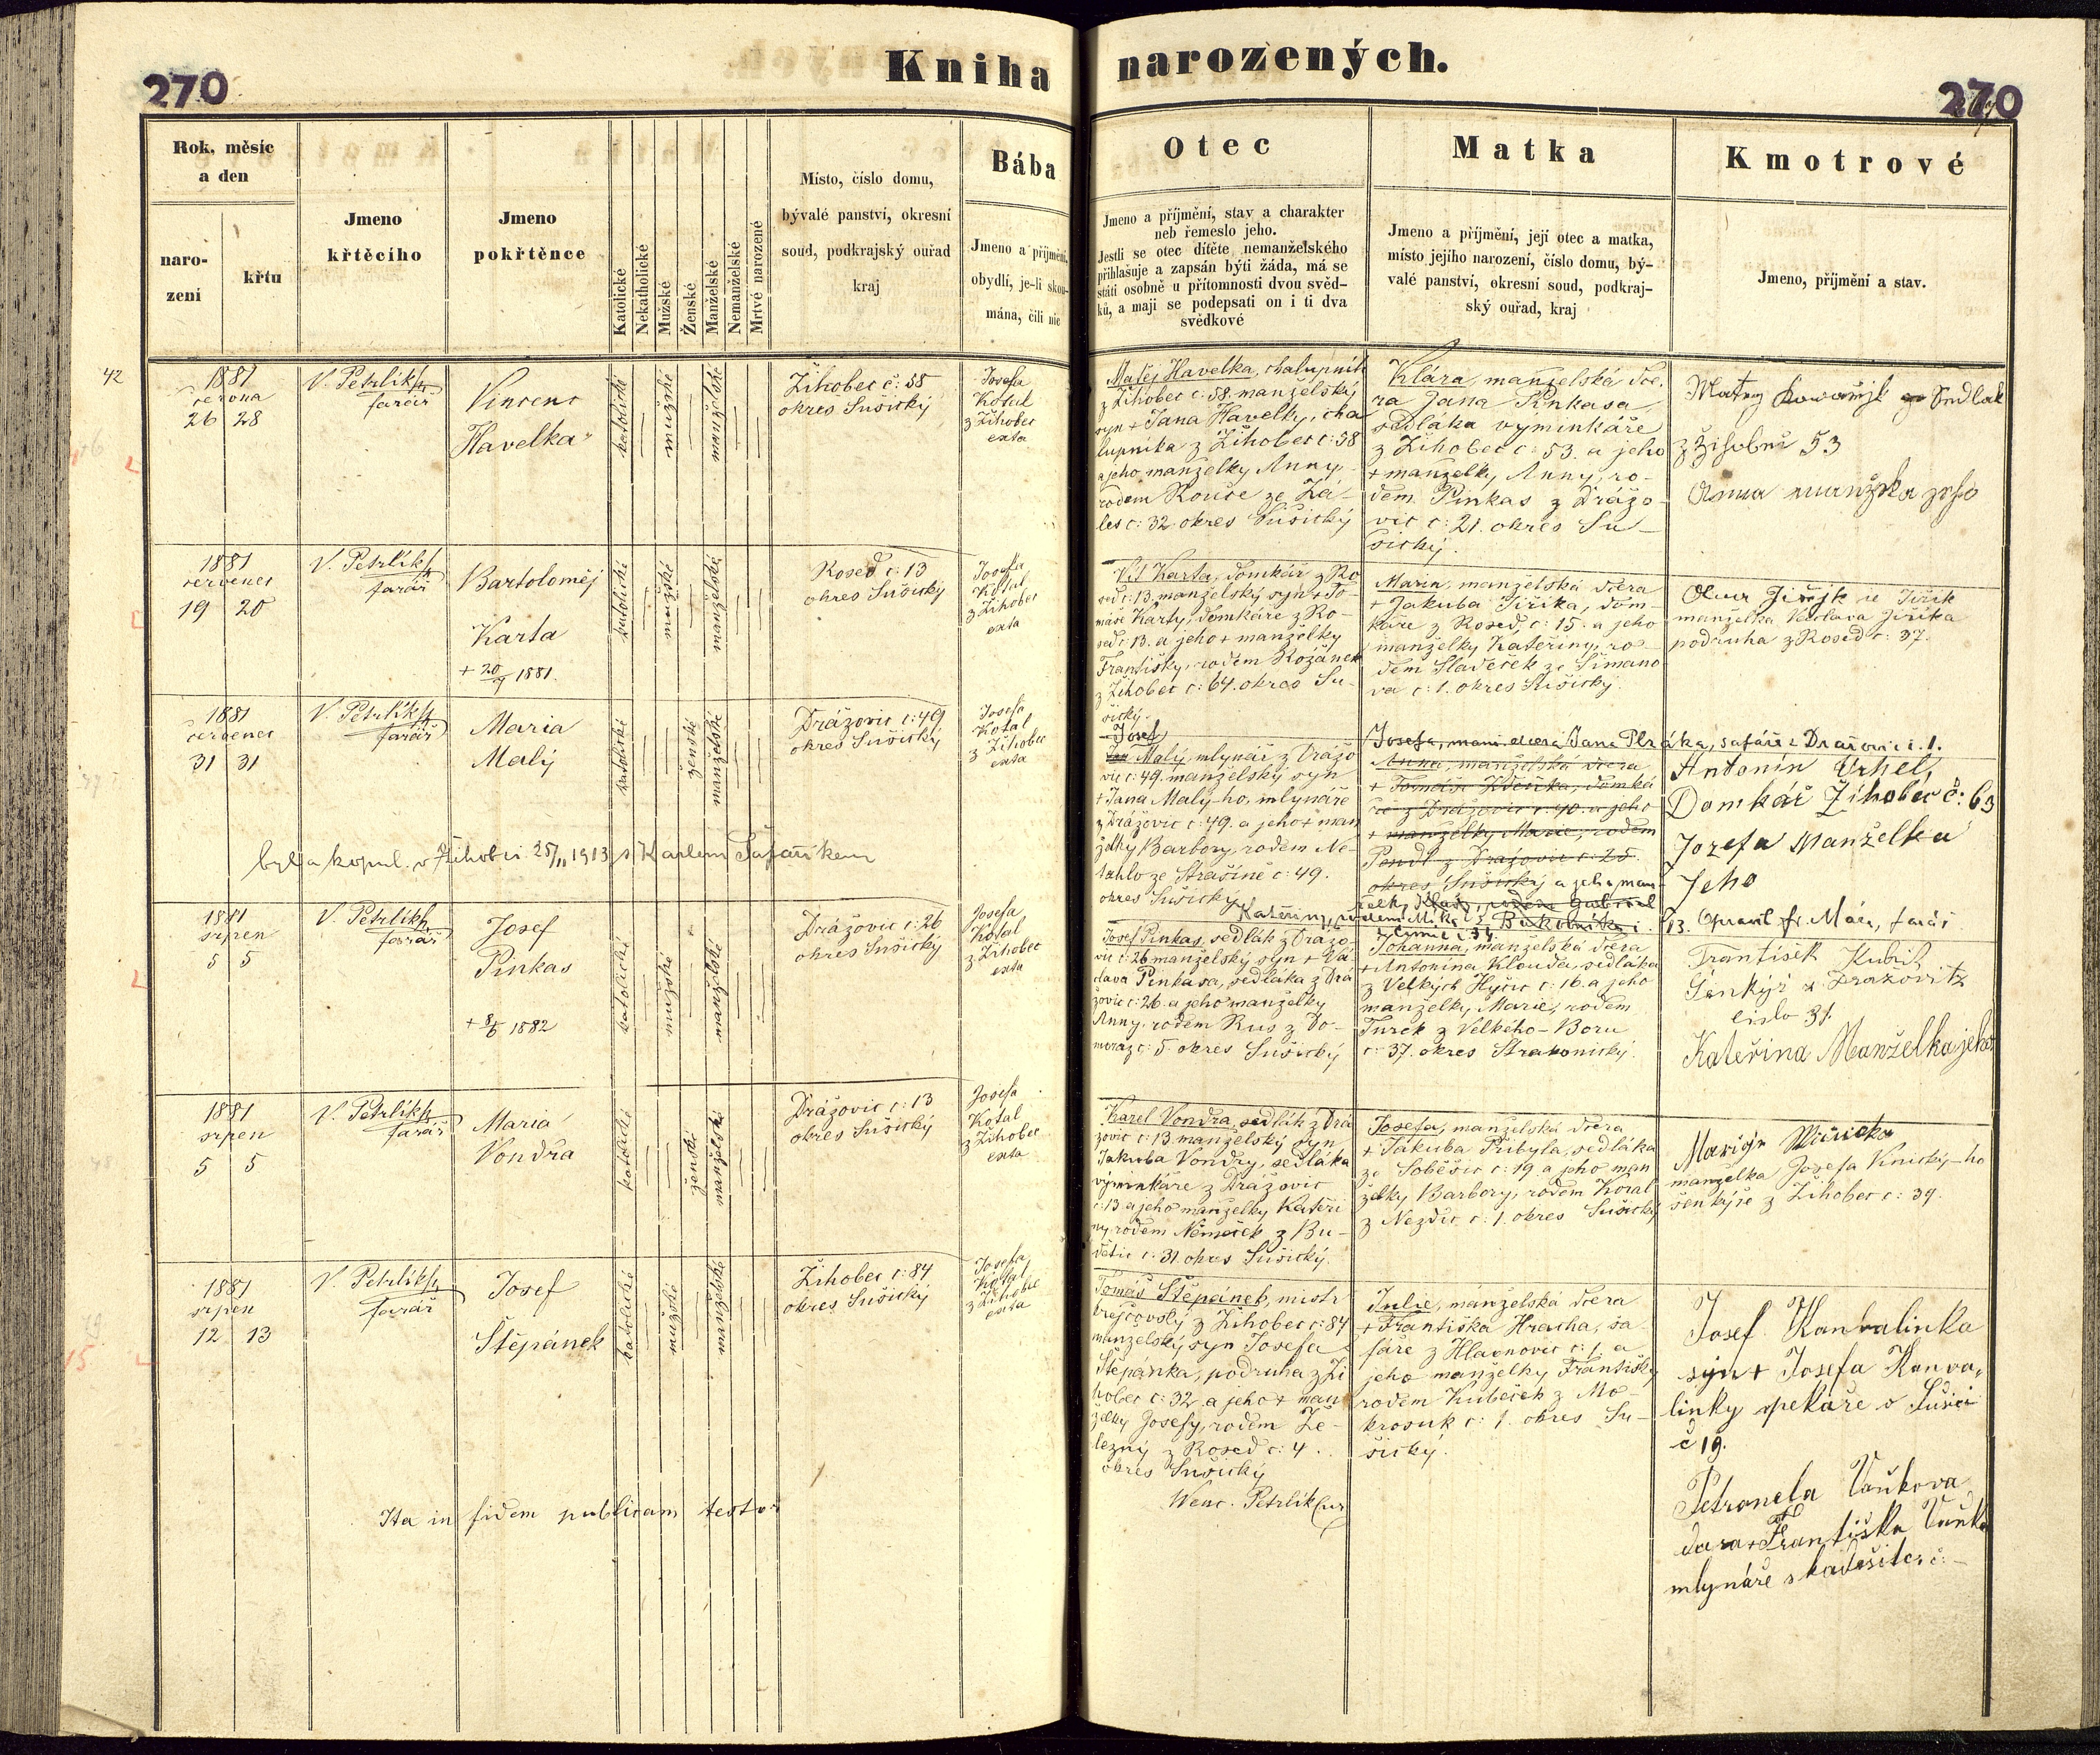 Kniha narozených.
270
270
Rok, měsíc
a den
naro-
zení
křtu
Jmeno
křtěcího
Jmeno
pokřtěnce
Katolické
Nekatholické
Mužské
Ženské
Manželské
Nemanželské
Mrtvě narozené
Místo, číslo domu,
bývalé panství, okresní
soud, podkrajský ouřad
kraj
Bába
Jmeno a příjmení,
obydlí, je-li skou-
mána, čili nic
Otec
Jmeno a příjmení, stav a charakter
neb řemeslo jeho.
Jestli se otec dítěte nemanželského
přihlašuje a zapsán býti žáda, má se
státi osobně u přítomnosti dvou svěd-
ků, a mají se podepsati on i ti dva
svědkové
Matka
Jmeno a příjmení, její otec a matka,
místo jejího narození, číslo domu, bý-
valé panství, okresní soud, podkraj-
ský ouřad, kraj
Kmotrové
Jmeno, příjmení a stav.
42
1881
června
26 28
V. Petrlík
farář
Vincenc
Havelka
katolické
mužské
manželské
Žihobec č: 58
okres Sušický
Josefa
Kotal
z Žihobec
exta
Matěj Havelka, chalupník
z Žihobec č: 58. manželský
syn + Jana Havelky, cha
lupníka z Žihobec č: 58
a jeho manželky Anny,
rodem Rouče ze Zá-
les č: 32. okres Sušický
Klára, manželská dce-
ra Jana Pinkasa,
sedláka vyminkáře
z Žihobec č: 53. a jeho
+ manželky Anny, ro-
dem Pinkas z Drážo-
vic č: 21. okres Su-
šický.
Sedlak
53
Anna
1881
červenec
19 20
V. Petrlík
farář
Bartoloměj
Karta
+ 20/9 1881.
katolické
mužské
manželské
Rosed č: 13
okres Sušický
Josefa
Kotal
z Žihobec
exta
Vít Karta, domkář z Ro
sed č: 13. manželský syn + To-
máše Karty, domkáře z Ro-
sed č: 13. a jeho + manželky
Františky, rodem Rožánek
z Žihobec č: 64. okres Su-
šický.
Maria, manželská dcera
+ Jakuba Jiřika, dom-
káře z Rosed, č: 15. a jeho
manželky Kateřiny, ro-
dem Sladeček ze Šimano
va č: 1. okres Sušický.
manželka Václava Jiřika
podruha z Rosed č: 37.
1881
červenec
31 31
V. Petrlík
farář
Maria
Malý
katolické
ženské
manželské
Drážovic č: 49
okres Sušický
Josefa
Kotal
z Žihobec
exta
Josef
Jan Malý, mlynář z Drážo
vic č: 49. manželský syn
+ Jana Malý-ho, mlynáře
z Drážovic č: 49. a jeho + man
želky Barbory, rodem Ne-
tahlo ze Strašíně č: 49.
okres Sušický
Josefa, manž. dcera Jana Ptáka, šafáře z Dražovic č. 1.
Anna, manželská dcera
+ Tomáše, domká
ře z Drážovic č: 40. a jeho
+ manželky Marie, rodem
z Drážovic č: 25.
okres Sušický a jeho man-
Antonín Vrhel,
Domkář Žihobec č: 63
Jozefa Manželka
Jeho
byla kopul. v Žihobci 25/11 1913 s Karlem Šafaříkem
1881
srpen
5 5
V. Petrlík
farář
Josef
Pinkas
+ 8/6 1882
katolické
mužské
manželské
Drážovic č: 26
okres Sušický
Josefa
Kotal
z Žihobec
exta
Josef Pinkas, sedlák z Drážo-
vic č: 26 manželský syn + Vá-
clava Pinkasa, sedláka z Drá
žovic č: 26. a jeho manželky
Anny, rodem Rus z Do-
moraz č: 5. okres Sušický
Johanna, manželská dcera
+ Antonína Klouda, sedláka
z Velkých Hyčic č: 16. a jeho
manželky Marie, rodem
Turek z Velkého-Boru
č: 37. okres Strakonický.
František Kubík
Šenkýř z Dražovitz
čislo 31.
Kateřina Manželka jeho
1881
srpen
5 5
V. Petrlík
farář
Maria
Vondra
katolické
ženské
manželské
Drážovic č: 13
okres Sušický
Josefa
Kotal
z Žihobec
exta
Karel Vondra, sedlák z Drá
žovic č: 13 manželský syn
Jakuba Vondry, sedláka
výminkáře z Drážovic
č: 13. a jeho manželky Kateři
ny, rodem Němeček z Bu-
dětic č: 31. okres Sušický.
Josefa, manželská dcera
+ Jakuba Přibyla, sedláka
ze Soběšic č: 19 a jeho man
želky Barbory, rodem Koral
z Nezdic č: 1. okres Sušický
manželka Josefa Knický-ho
šenkýře z Žihobec č: 39.
1881
srpen
12 13
V. Petrlík
farář
Josef
Štěpánek
katolické
mužské
manželské
Žihobec č: 84
okres Sušický
Josefa
Kotal
z Žihobec
exta
Tomáš Štěpánek, mistr
krejčovský z Žihobec č: 84
manželský syn Josefa
Štěpánka, podruha z Ži
hobec č: 32 a jeho + man
želky Josefy, rodem Že-
lezný z Rosed č: 4.
okres Sušický
Julie, manželská dcera
+ Františka Hracha, ša-
fáře z Hlavnovic č: 1. a
jeho manželky Františky
rodem Kubeček z Mo-
krosuk č: 1. okres Su-
šický.
Josef Konvalinka
syn + Josefa Konva-
linky pekaře v Sušici
č 19.
Petronela Vaňkova
dcera + Františka Vaňka
mlynáře
Ita in fidem publicam testor
Wenc. Petrlík